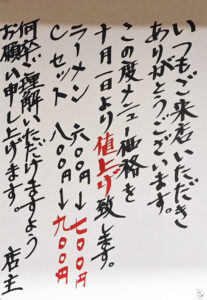 いつもご来店いただき
ありがとうございます。
この度メニュー価格を
十月一日より値上げ致します。
ラーメン 六〇〇円→七〇〇円
Cセット 八〇〇円→九〇〇円
何卒ご理解いただけますよう
お願い申し上げます。
店主